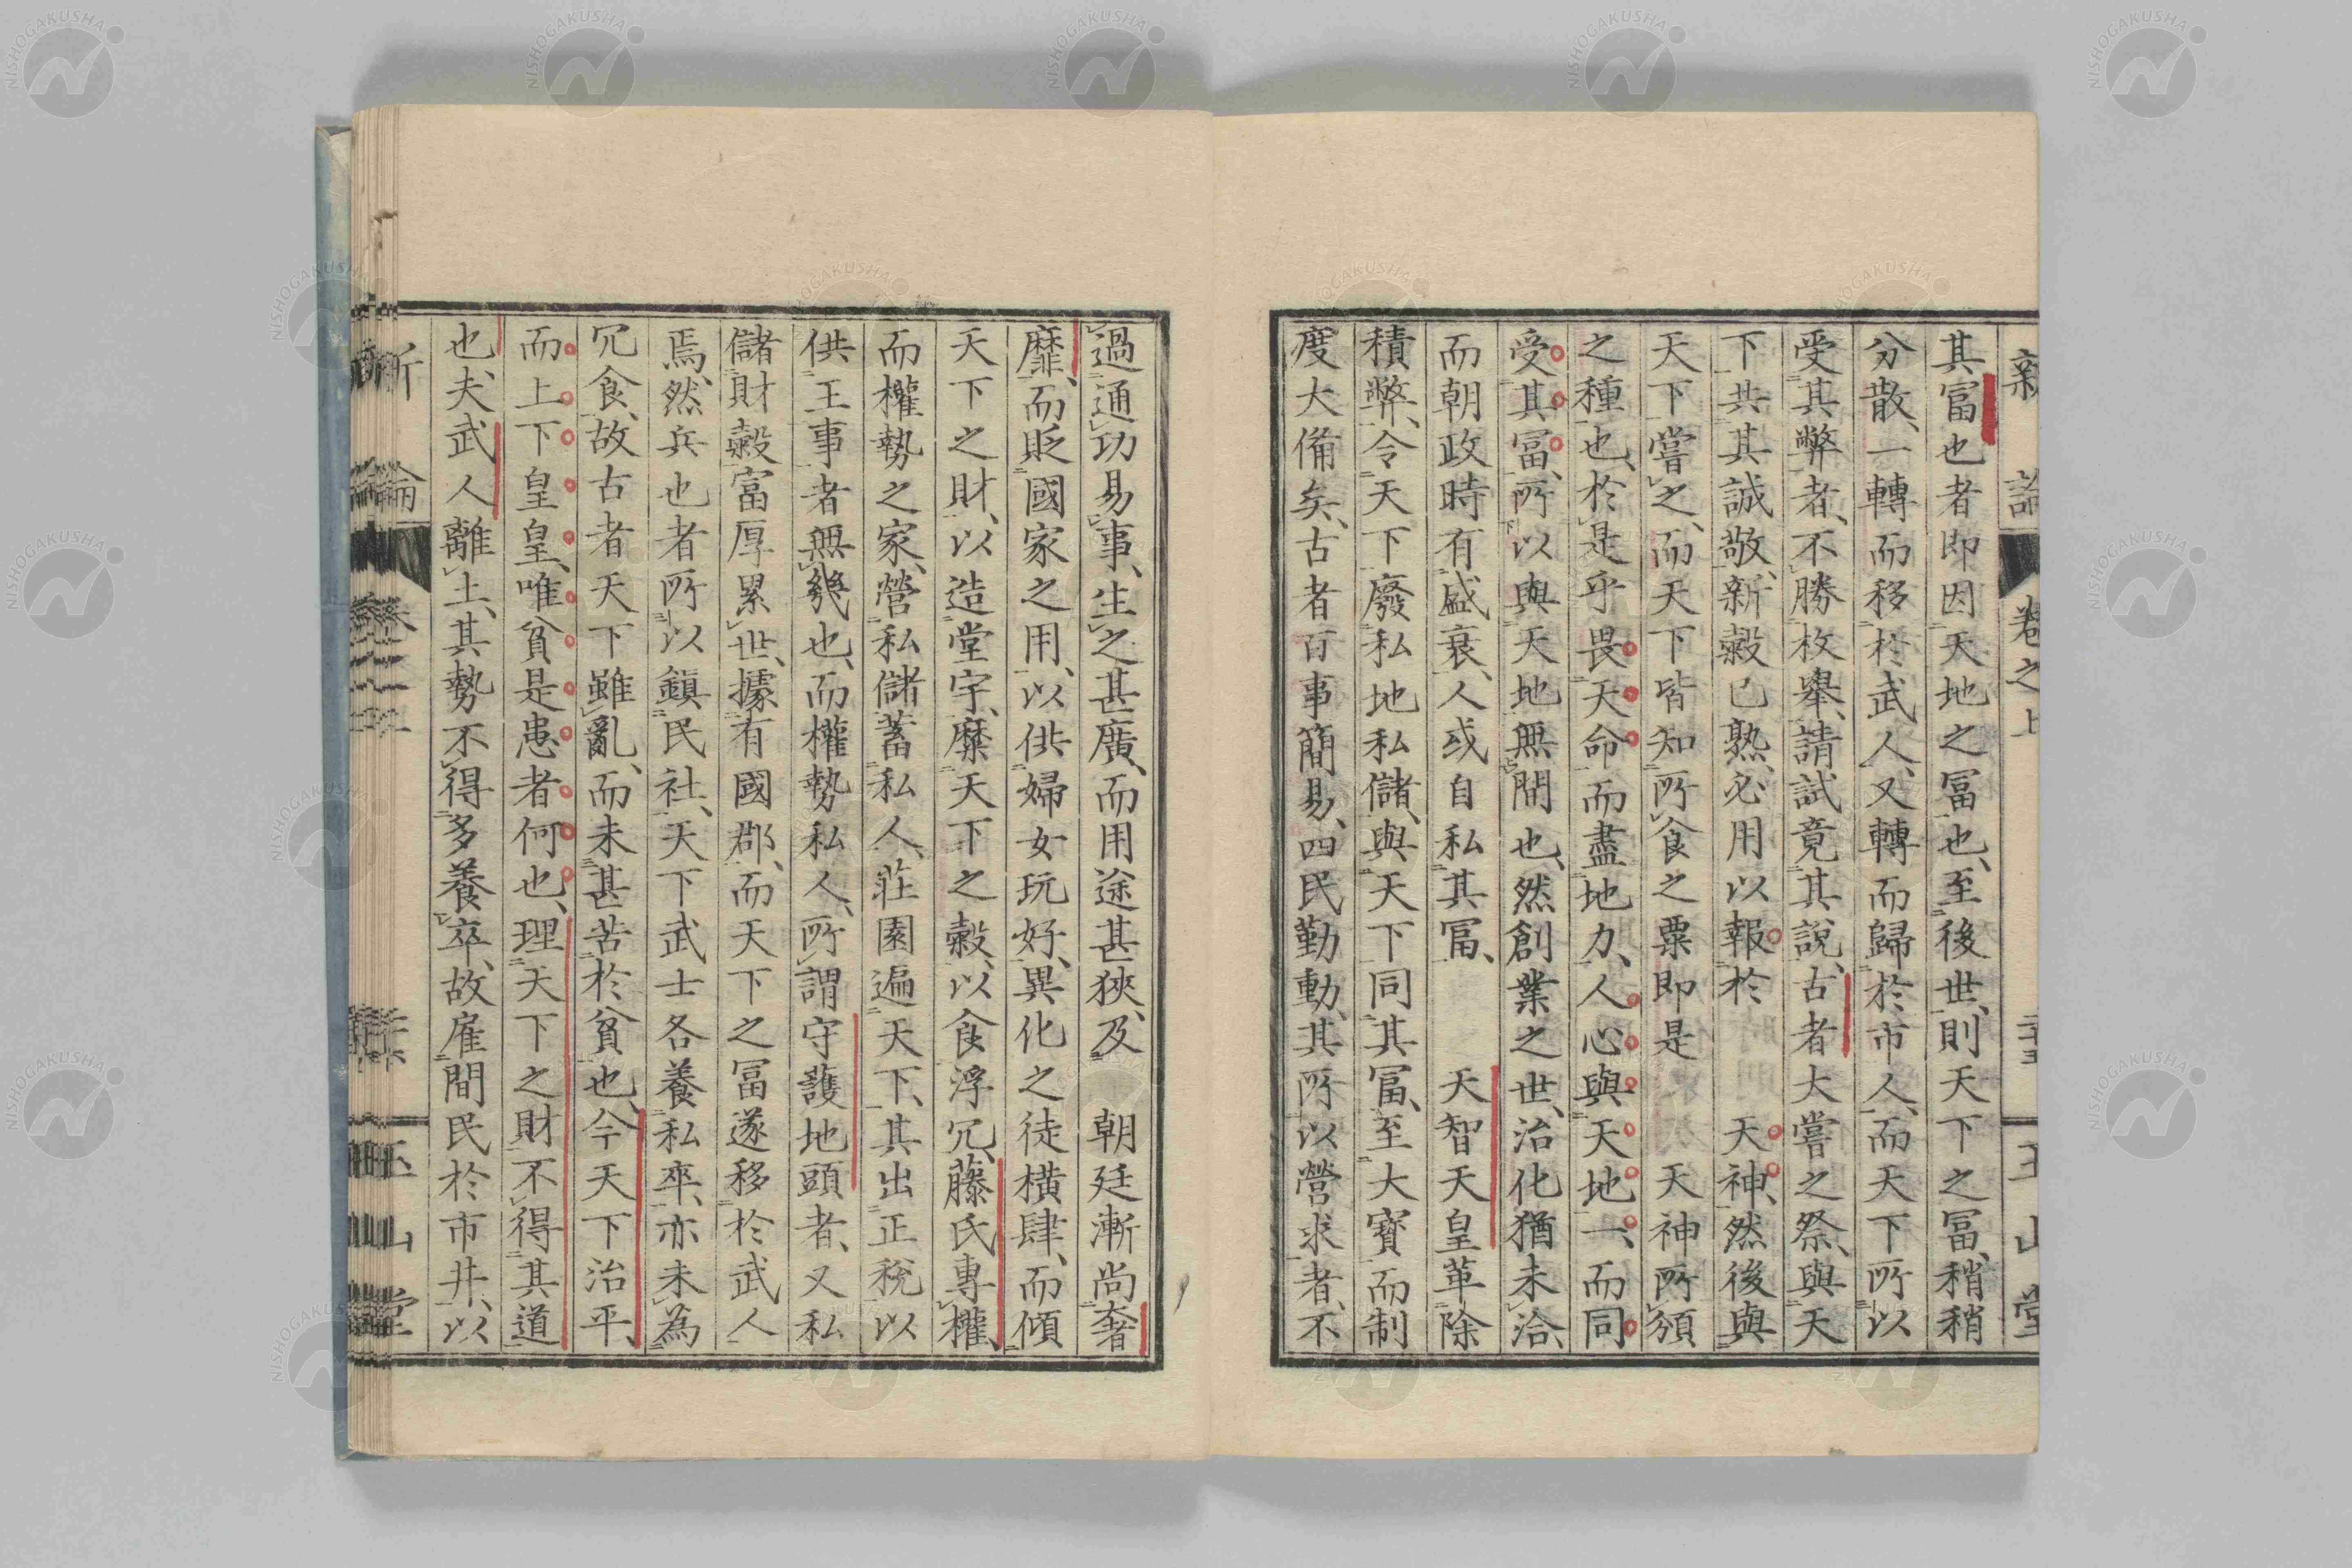 其富也者即因天地之富也、至後世、則天下之富、稍稍
分散、一轉而移於武人、又轉而歸於市人、而天下所以
受其弊者、不勝枚舉、請試竟其說、古者大嘗之祭、與天
下共其誠敬、新穀已熟、必用以報於　天神、然後與
天下嘗之、而天下皆知所食之粟即是　天神所頒
之種也、於是乎畏天命而盡地力、人心與天地一、而同
受其富、所以與天地無間也、然創業之世、治化猶未洽、
而朝政時有盛衰、人或自私其富、　天智天皇革除
積弊、令天下廢私地私儲、與天下同其富、至大寶而制
度大備矣、古者百事簡易、四民勤動、其所以營求者、不
過通功易事、生之甚廣、而用途甚狹、及　朝廷漸尚奢
靡、而貶國家之用、以供婦女玩好、異化之徒橫肆、而傾
天下之財、以造堂宇、糜天下之穀、以食浮冗、藤氏專權、
而權勢之家、營私儲蓄私人、莊園遍天下、其出正稅以
供王事者無幾也、而權勢私人、所謂守護地頭者、又私
儲財穀、富厚累世、據有國郡、而天下之富遂移於武人
焉、然兵也者所以鎮民社、天下武士各養私卒、亦未為
冗食、故古者天下雖亂、而未甚苦於貧也、今天下治平、
而上下皇皇、唯貧是患者何也、理天下之財不得其道
也、夫武人離土、其勢不得多養卒、故雇間民於市井、以
新論　卷之上　玉山堂
NISHOGAKUSHA